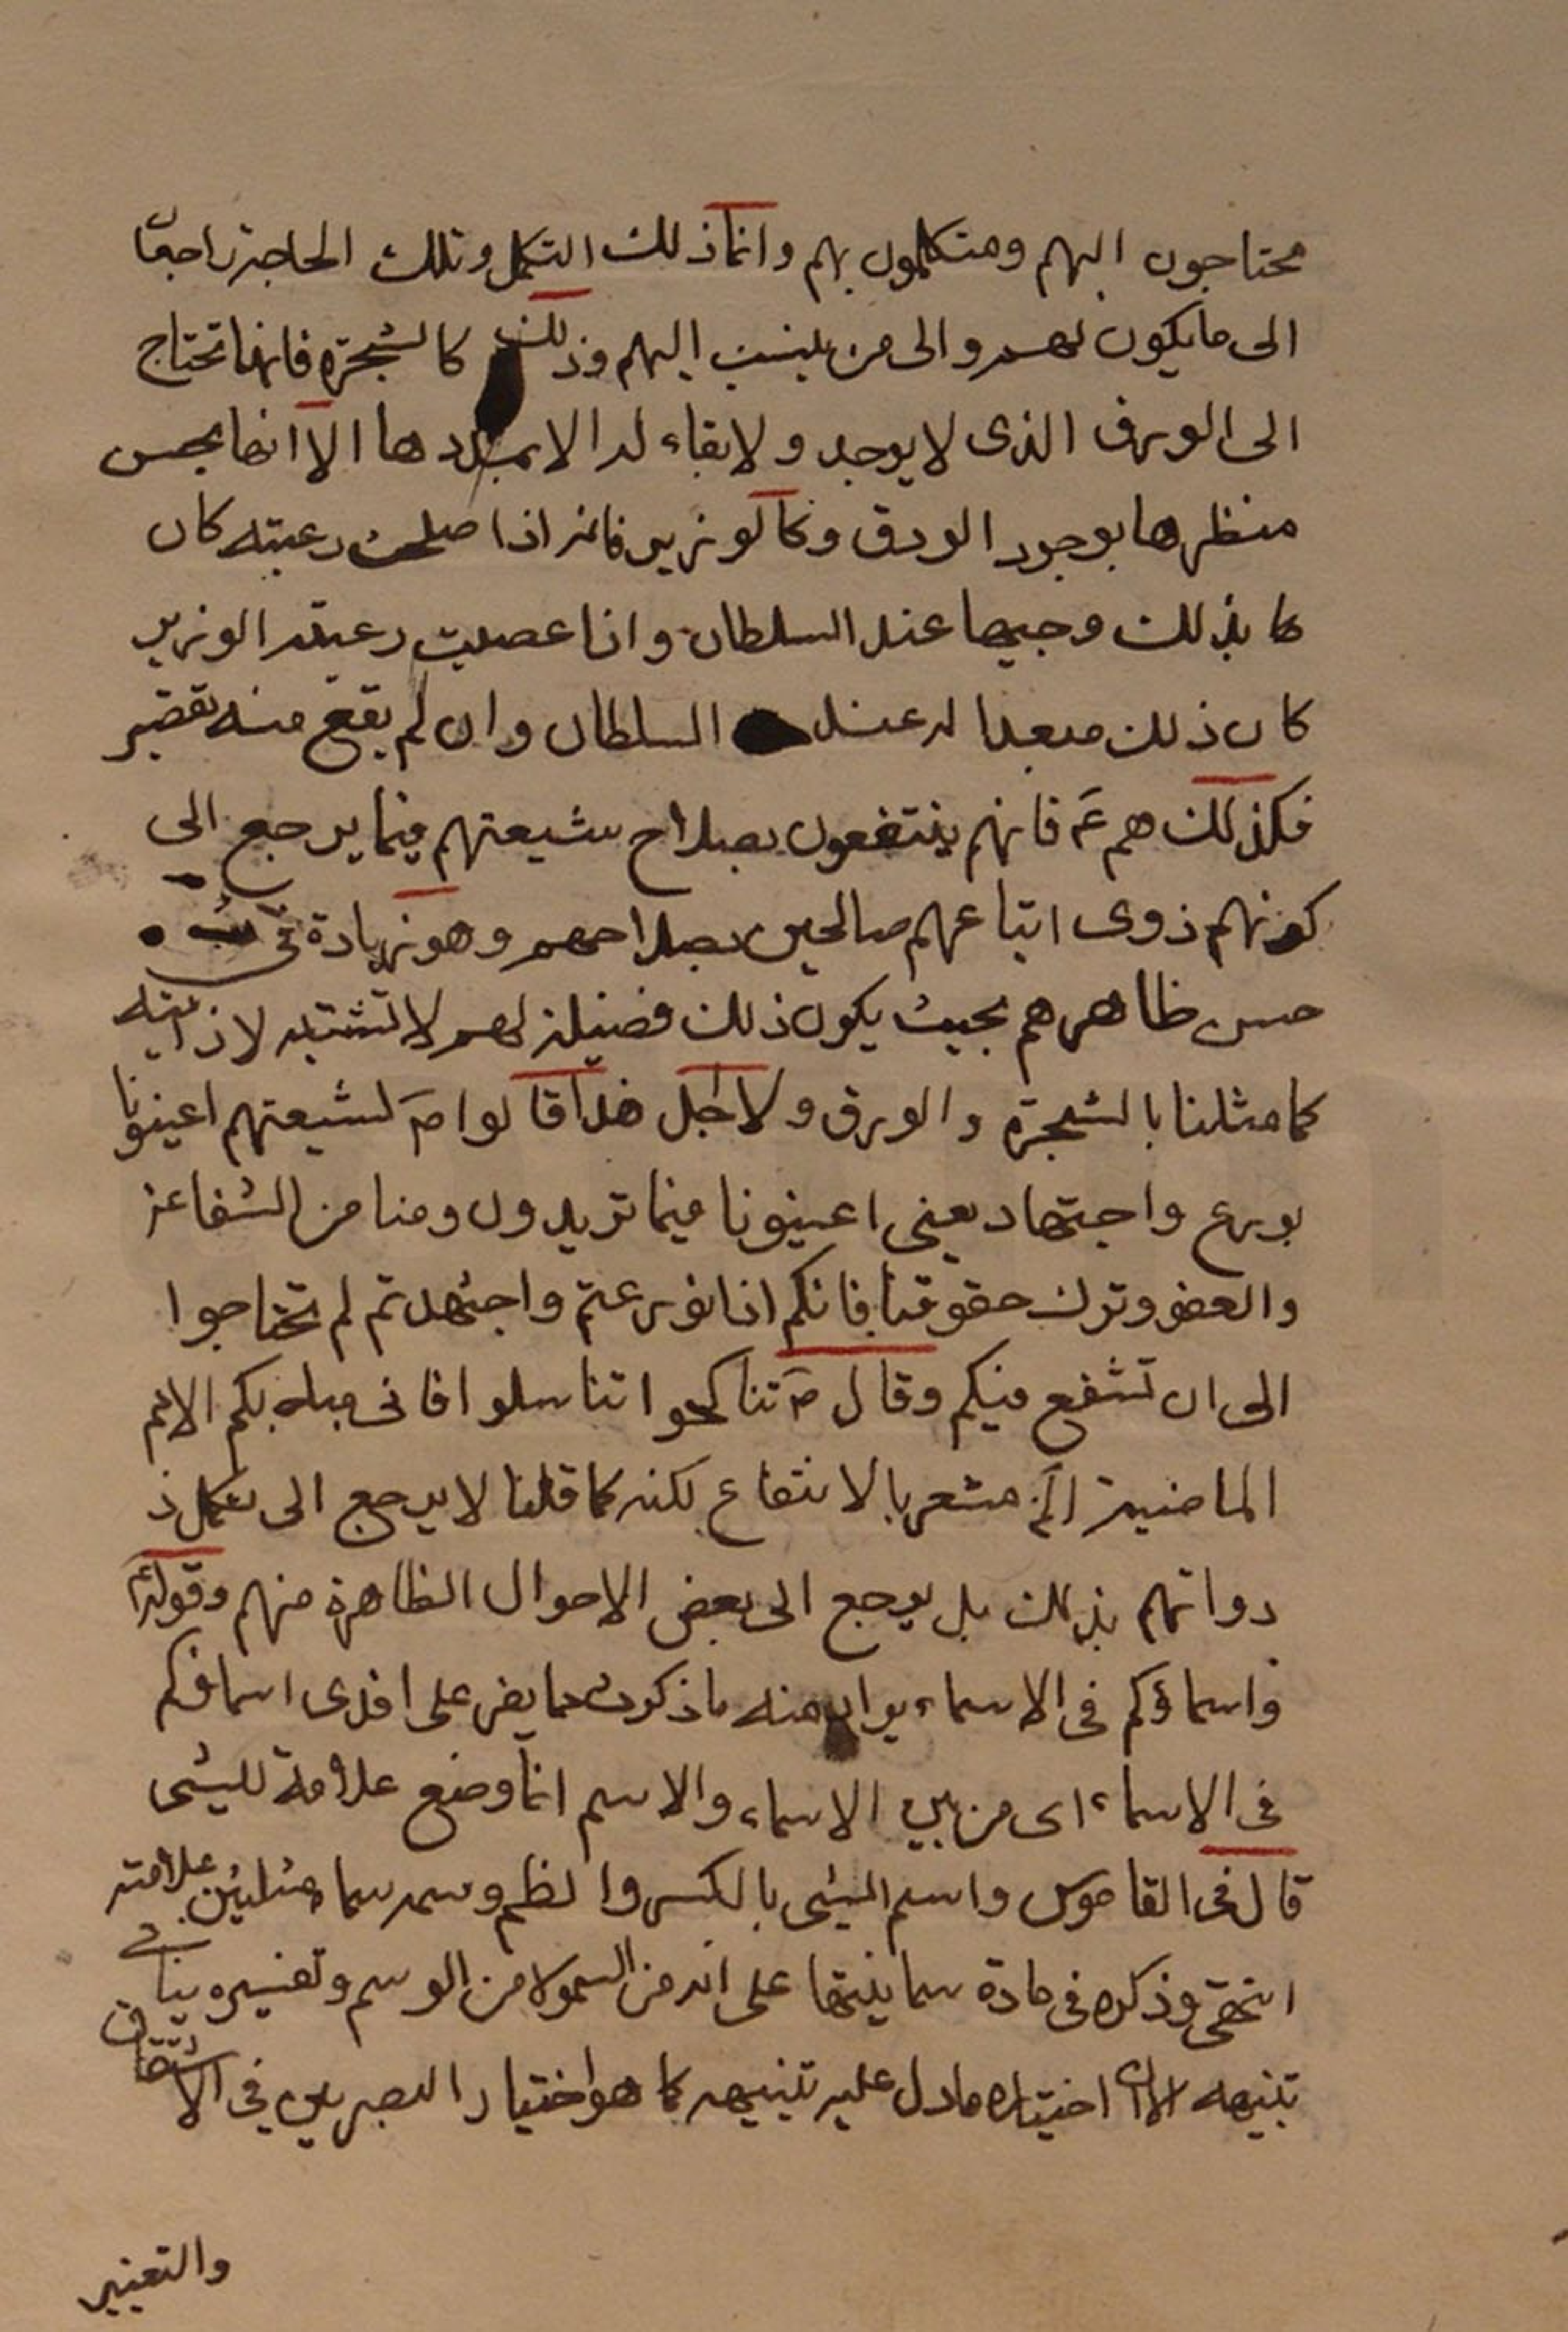 محتاجون اليهم ومتكلمون بهم وانما ذلك التكمل وتلك الحاجة راجعا
الى ما يكون لهم والى من ينسب اليهم وذلك كالشجرة فانها تحتاج
الى الورق الذى لا يوجد ولا بقاء له الا بمددها الا انها يحسن
منظرها بوجود الورق وكالوزير فانه اذا صلحت رعيته كان
كا بذلك وجيها عند السلطان واذا عصيت رعيته الوزير
كان ذلك مبعدا له عند السلطان وان لم يقع منه تقصير
فكذلك هم ع فانهم ينتفعون بصلاح شيعتهم فيما يرجع الى
كونهم ذوى اتباعهم صالحين بصلاحهم وهو زيادة فى
حسن ظاهرهم بحيث يكون ذلك فضيلة لهم لا تشتبه لا ذاتيه
كما مثلنا بالشجرة والورق ولاجل هذا قالوا ع لشيعتهم اعينونا
بورع واجتهاد يعنى اعينونا فيما تريدون ومنا من الشفاعة
والعفو وترك حقوقنا فانكم اذا تورعتم واجتهدتم لم تحتاجوا
الى ان تشفع فيكم وقال ص تناكحوا تناسلوا فانى مباه بكم الامم
الماضية الخ مشعر بالانتفاع لكنه كما قلنا لا يرجع الى تكمل ذ
دواتهم بذلك بل يرجع الى بعض الاحوال الظاهرة منهم وقوله ع
واسماؤكم فى الاسماء يراد منه ما ذكرت مما يفز على افدى اسماؤكم
فى الاسماء اى من بين الاسماء والاسم انما وضع علامة للشىء
قال فى القاموس واسم الشىء بالكسر والظم وسمه سما مثلثين علامته
انتهى وذكره فى مادة سما ينبها على انه من السمو لا من الوسم وتفسيره ينافى
تنبيهه الا ان اختياره ما دل عليه تنبيهه كما هو اختيار البصريين فى الاشتقاق
والتعيير